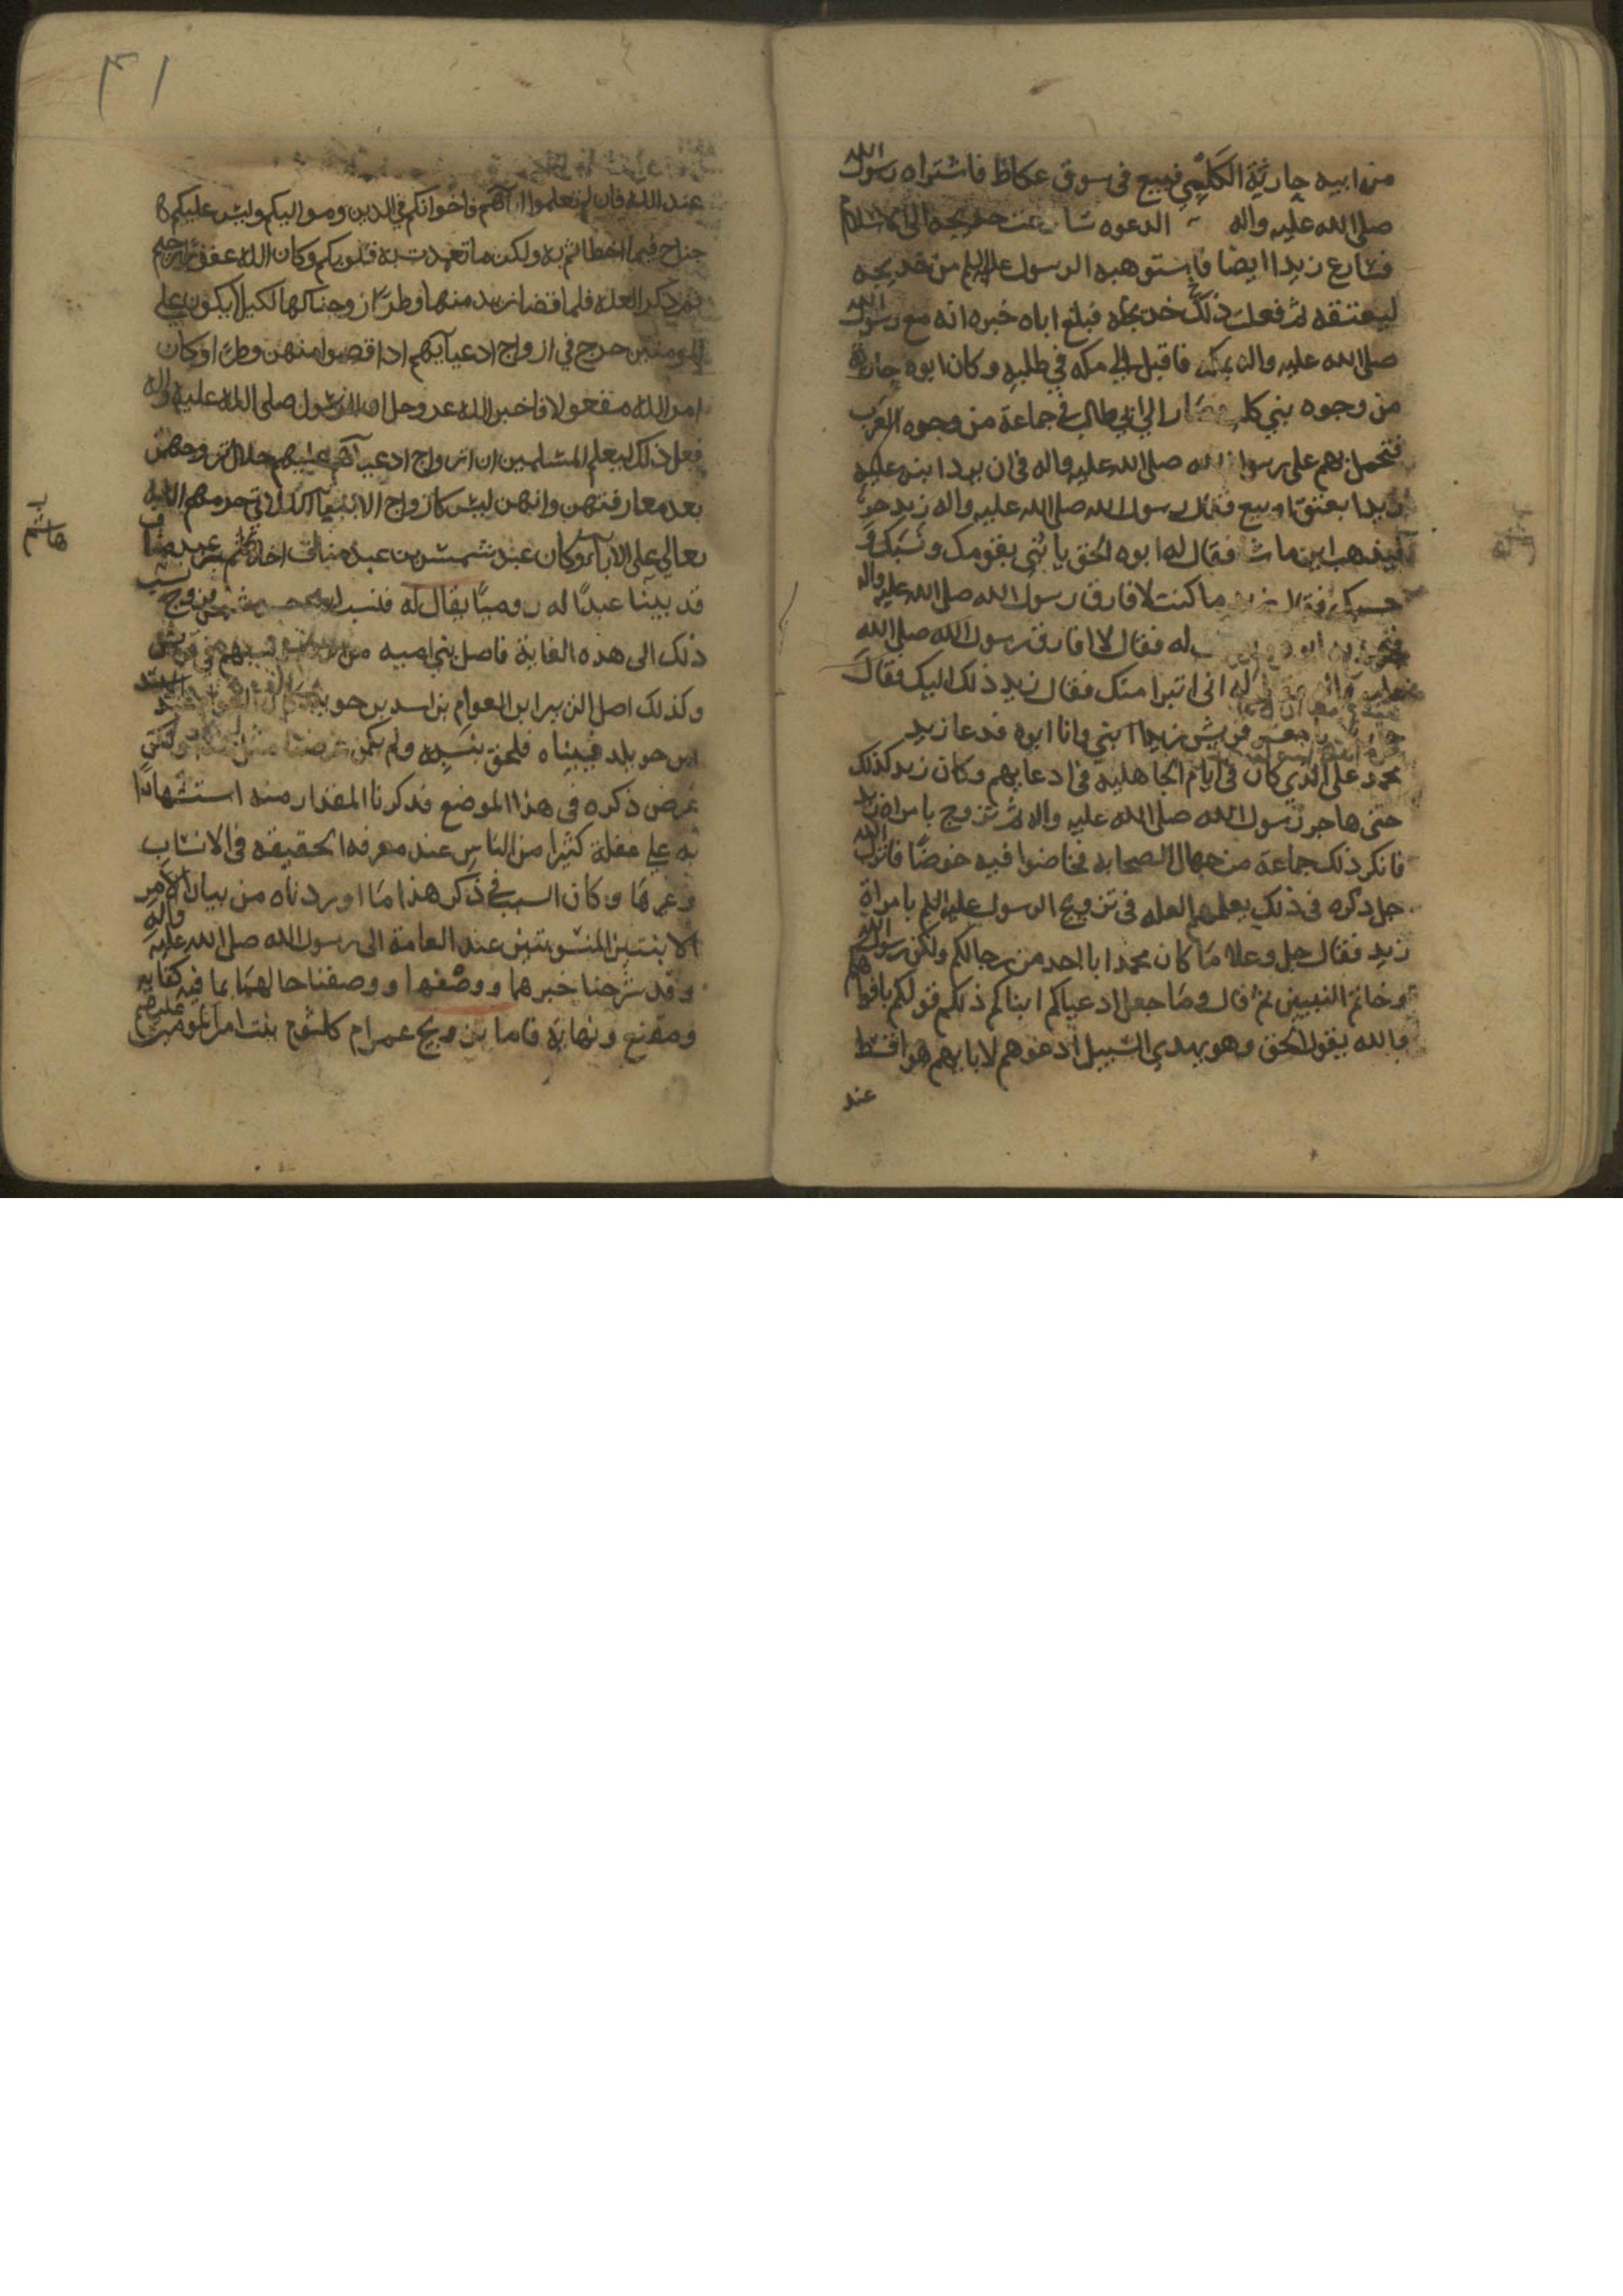 من ابيه حارثة الكلبي فبيع في سوق عكاظ فاشتراه رسول الله
صلى الله عليه واله الدعوه خديجه الى الاسلام
فسارع زيد ايضا فاستوهبه الرسول عليه السلم من خديجه
ليعتقه ففعلت ذلك خديجه فبلغ اباه خبره انه مع رسول الله
صلى الله عليه واله بمكه فاقبل الى مكه في طلبه وكان ابوه حارثة
من وجوه بني كلب فصار الى ابي طالب في جماعة من وجوه العرب
فتحمل بهم على رسول الله صلى الله عليه واله في ان يرد ابنه عليه
زيدا بعتق او بيع فقال رسول الله صلى الله عليه واله زيد حر
فليذهب اين ما شا فقال له ابوه الحق يا بني بقومك ونسبك و
حسبك فقال زيد ما كنت لافارق رسول الله صلى الله عليه واله
ابوه له فقال لا افارق رسول الله صلى الله
عليه واله فقال له اني اتبرا منك فقال زيد ذلك اليك فقال
يا معشر قريش زيد ابني وانا ابوه فدعا زيد
محمد على الذي كان في ايام الجاهليه في ادعايهم وكان زيد كذلك
حتى هاجر رسول الله صلى الله عليه واله ثم تزوج بامراة زيد
فانكر ذلك جماعة من جهال الصحابه فخاضوا فيه خوضًا فانزل الله
جل ذكره في ذلك يعلمهم العله في تزويج الرسول عليه السلم بامراة
زيد فقال جل وعلا مَا كان محمد ابا احد من رجالكم ولكن رسول الله
وخاتم النبيين ثم قال ومَا جعل ادعياكم ابناكم ذلكم قولكم بافواهكم
والله يقول الحق وهو يهدي السبيل ادعوهم لابايهم هو اقسط
عند
٤١
عند الله فان لم تعلموا اباآهم فاخوانكم في الدين ومواليكم وليس عليكم
جناح فيما اخطاتم به ولكن ما تعمدت به قلوبكم وكان الله غفورًا رحيم
ثم ذكر العله فلما قضا زيد منها وطرًا زوجناكها لكيلا يكون على
المومنين حرج في ازواج ادعيآيهم اذا قضوا منهن وطرًا وكان
امر الله مفعولا فاخبر الله عز وجل ان الرسول صلى الله عليه واله
فعل ذلك ليعلم المسلمين ان ازواج ادعيآهم عليهم حلال تزوجهن
بعد مفارقتهن وانهن ليس كازواج الابنآء اللاتي حرمهم الله
تعالى على الابآء وكان عبد شمس بن عبد مناف اخا هاشم بن عبد مناف
هاشم
قد تبنا عبدًا له روميًا يقال له فنسب
ذلك الى هذه الغاية فاصل بني اميه من ونسبهم في قريش
وكذلك اصل الزبير ابن العوام بن اسد بن خويلد
ابن خويلد فتبناه فلحق بنسبه ولم يكن
غرض ذكره في هذا الموضع فذكرنا المقدار منه استشهادًا
به على غفلة كثيرا من الناس عند معرفه الحقيقه في الانساب
وغيرها وكان السبب في ذكر هذا مَا اوردناه من بيان الامر
الابنتين المنسوبتين عند العامة الى رسول الله صلى الله عليه واله
وقد شرحنا خبرهما ووصفنها ووصفنا حالهمَا بما فيه كفايه
ومقنع ونهاية فاما تزويج عمر ام كلثوم بنت امير المومنين